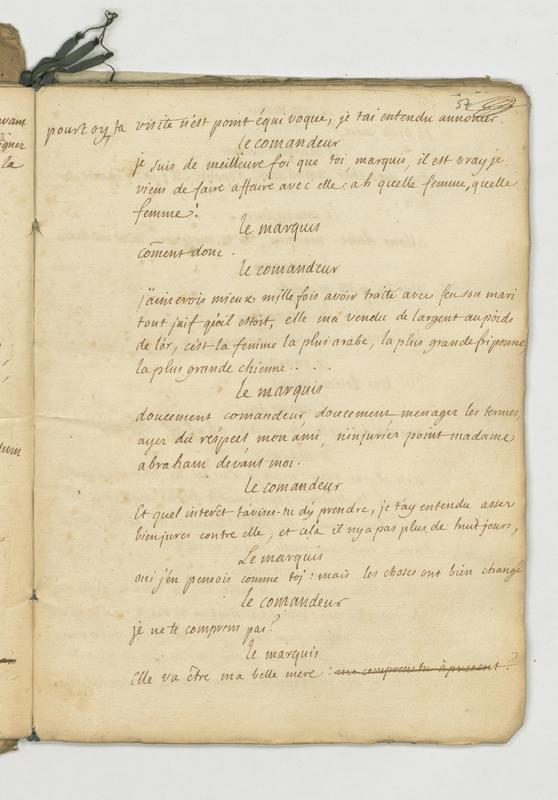 evant
igner
la
57
pourtoy ta visite n'est point équivoque, je t'ai entendu annoncer.
le comandeur
je suis de meilleure foi que toi marquis, il est vray je
viens de faire affaire avec elle : ah quelle femme, quelle
femme !
le marquis
coment donc .
le comandeur
j'aimerois mieux mille fois avoir traité avec feu son mari
tout juif qu'il estoit, elle m'a vendu de l'argent au poids
de l'or, c'est la femme la plus arabe, la plus grande friponne
la plus grande chienne . . . .
le marquis
doucement comandeur, doucement menager les termes,
ayez du réspect mon ami, n'injuriés point madame
abraham devant moi .
le comandeur
Et quel interêt t'avises-tu d'y prendre, je t'ay entendu assez
bien jurer contre elle, et cela il n'y a pas plus de huit jours,
Le marquis
oui j'en pensois comme toi : mais les choses ont bien changé
le comandeur
je ne te comprens pas ?
le marquis
Elle va être ma belle mere : me comprens tu à présent ?